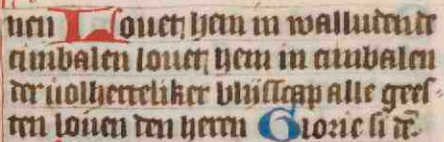 uen Louet hem in walludende
cimbalen louet hem in cimbalen
der uolherteliker bliisscap alle gees-
ten louen den heren Glorie si etc.